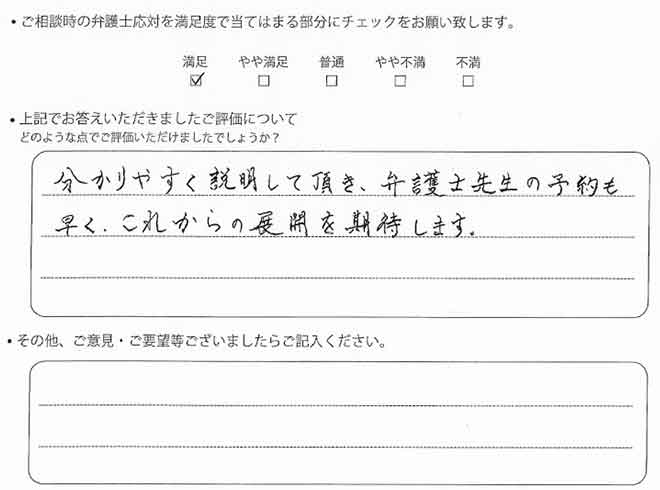 ・ご相談時の弁護士応対を満足度で当てはまる部分にチェックをお願い致します。
満足 やや満足 普通 やや不満 不満
☑ ☐ ☐ ☐ ☐
・上記でお答えいただきましたご評価について
どのような点でご評価いただけましたでしょうか？
分かりやすく説明して頂き、弁護士先生の予約も
早く、これからの展開を期待します。
・その他、ご意見・ご要望等ございましたらご記入ください。